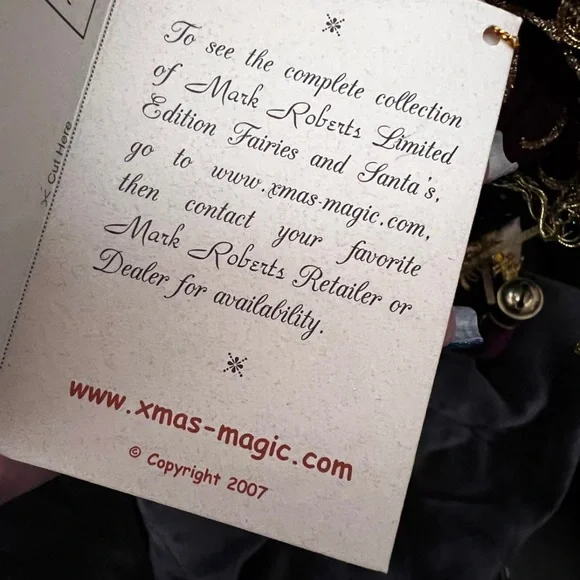 To see the complete collection
of Mark Roberts Limited
Edition Fairies and Santa's,
go to www.xmas-magic.com,
then contact your favorite
Mark Roberts Retailer or
Dealer for availability.
www.xmas-magic.com
© Copyright 2007
Cut Here